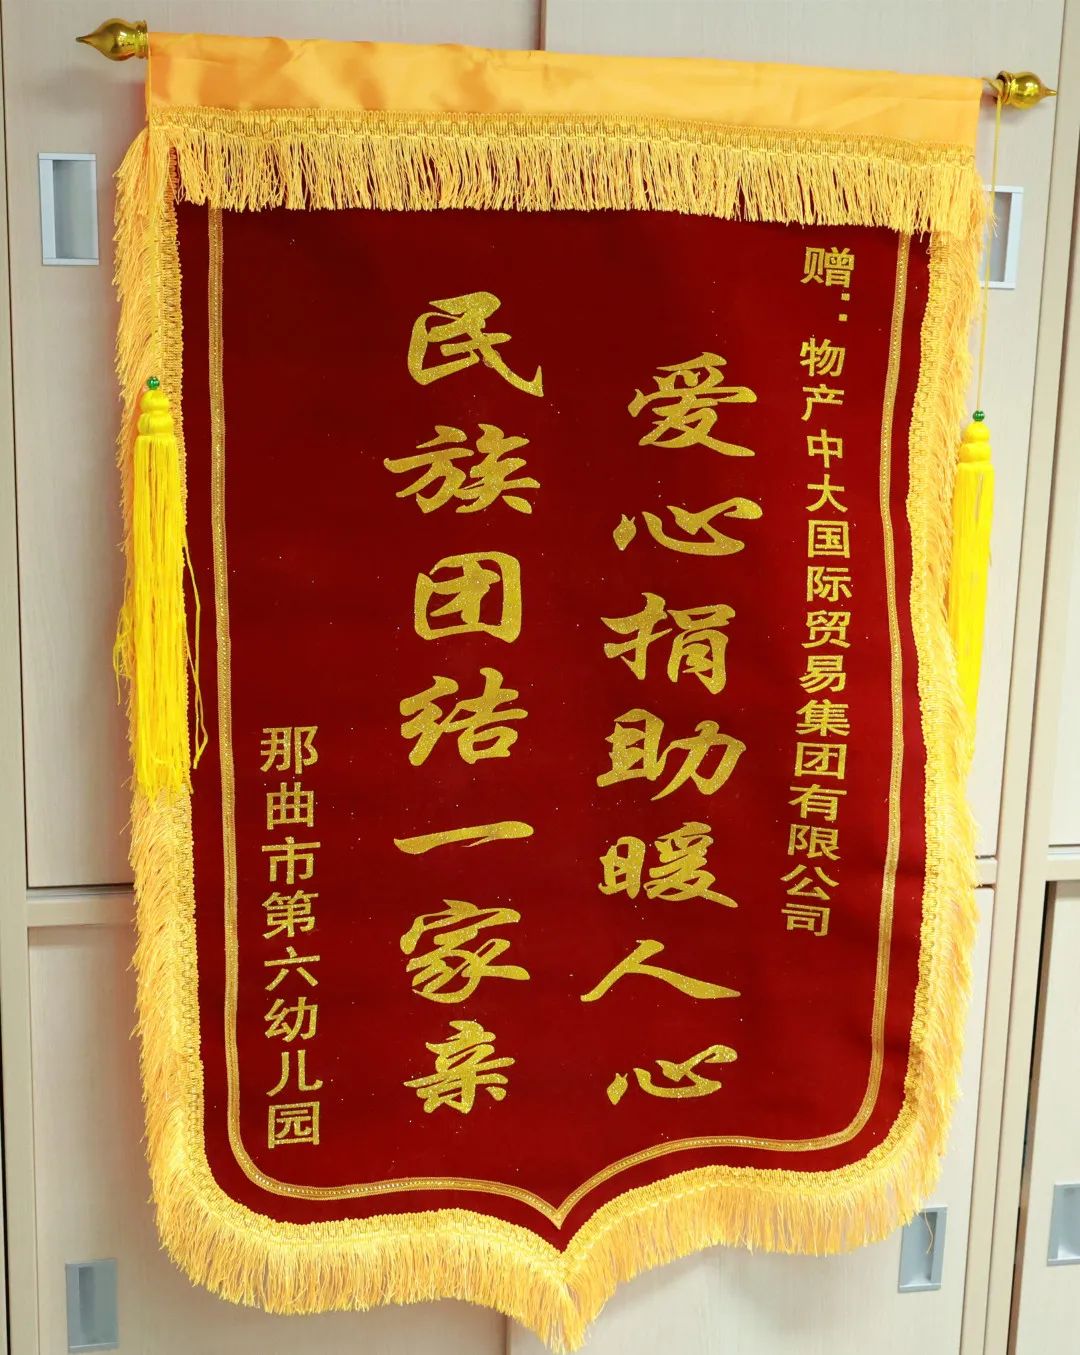 赠：物产中大国际贸易集团有限公司
爱心捐助暖人心
民族团结一家亲
那曲市第六幼儿园